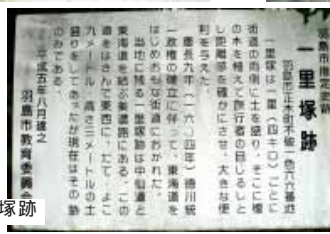 羽島市指定史跡
一里塚跡
羽島市正木町不破一色六六番地
一里塚は一里(四キロ)ごとに
街道の両側に土を盛り、そこに榎
の木を植えて旅行者の目じるしと
し距離感を確かにさせ、大きな便
利を与えた。
慶長九年(一六〇四年)徳川統
一政権の確立に伴って、東海道を
はじめおもな街道におかれた。
当地に残る一里塚跡は中仙道と
東海道を結ぶ美濃路にある。この
道をはさんで東西に、たて、よこ
九メートル、高さ三メートルの土
盛りをしてあったが現在はその跡
のみである。
平成五年八月建之
羽島市教育委員会
塚跡